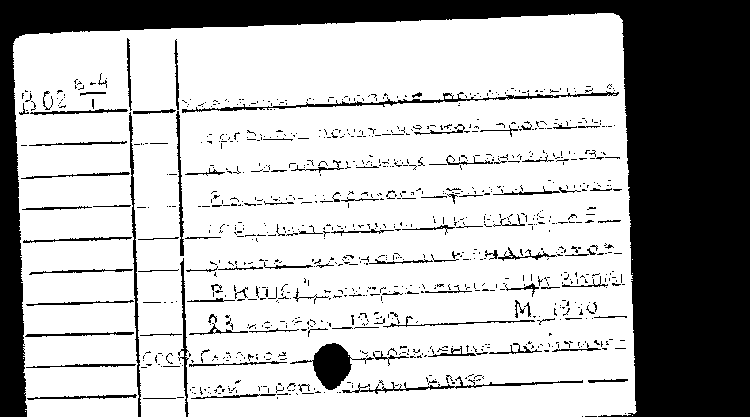 В02 В-4/I Указания о порядке применения в
органах политической пропаган-
ды и партийных организациях
Военно-морского флота Союза
ССР „Инструкции ЦК ВКП/б/ об
учете членов и кандидатов
ВКП/б/", утвержденной ЦК ВКП/б/
23 ноября 1939г. М., 1940
СССР. Главное управление политиче-
ской пропаганды ВМФ.